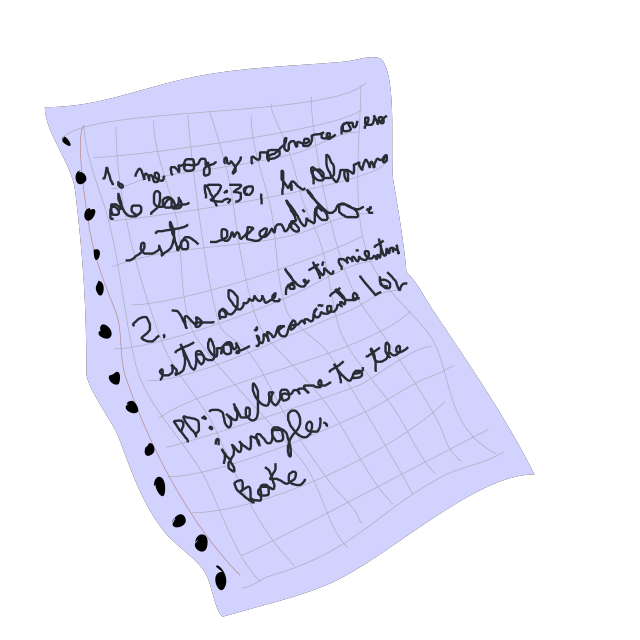 1. me voy y volvere a eso
de las 12:30, la alarma
esta encendida.
2. No abuse de ti mientras
estabas inconciente LOL
PD: Welcome to the
jungle.